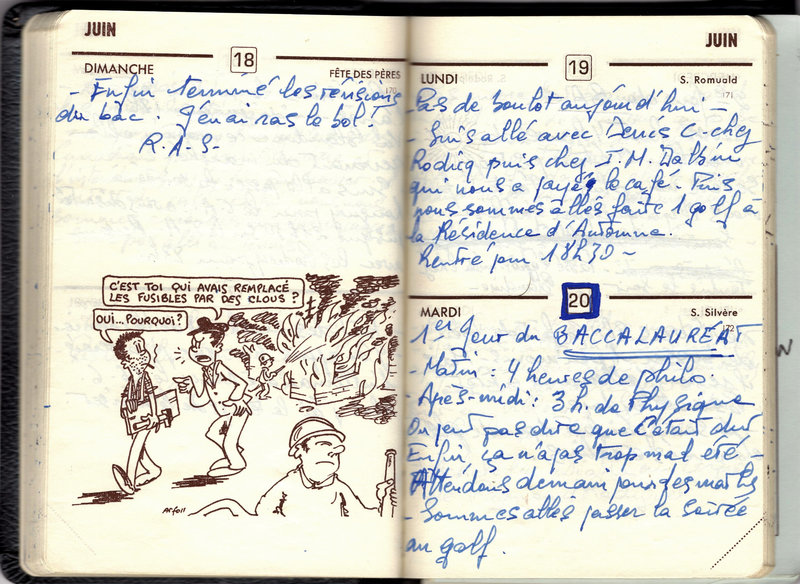 JUIN
18
DIMANCHE
FÊTE DES PÈRES
170
- Enfin terminé les révisions
du bac. J'en ai ras le bol!
R.A.S-
C'EST TOI QUI AVAIS REMPLACÉ
LES FUSIBLES PAR DES CLOUS ?
OUI...POURQUOI?
JUIN
19
LUNDI
S. Romuald
171
- Pas de boulot aujourd'hui -
- Suis allé avec Denis C. chez
Rodicq puis chez J.M. Dalbin
qui nous a payé le café. Puis
nous sommes allés faire 1 golf à
la Résidence d'Automne.
Rentré pour 18h30 -
20
MARDI
S. Silvère
172
1er Jour du BACCALAURÉAT
- Matin : 4 heures de philo.
- Après-midi : 3 h. de Physique
On peut pas dire que c'était dur
Enfin, ça n'a pas trop mal été -
Attendons demain pour les maths
- Sommes allés passer la soirée
au golf.